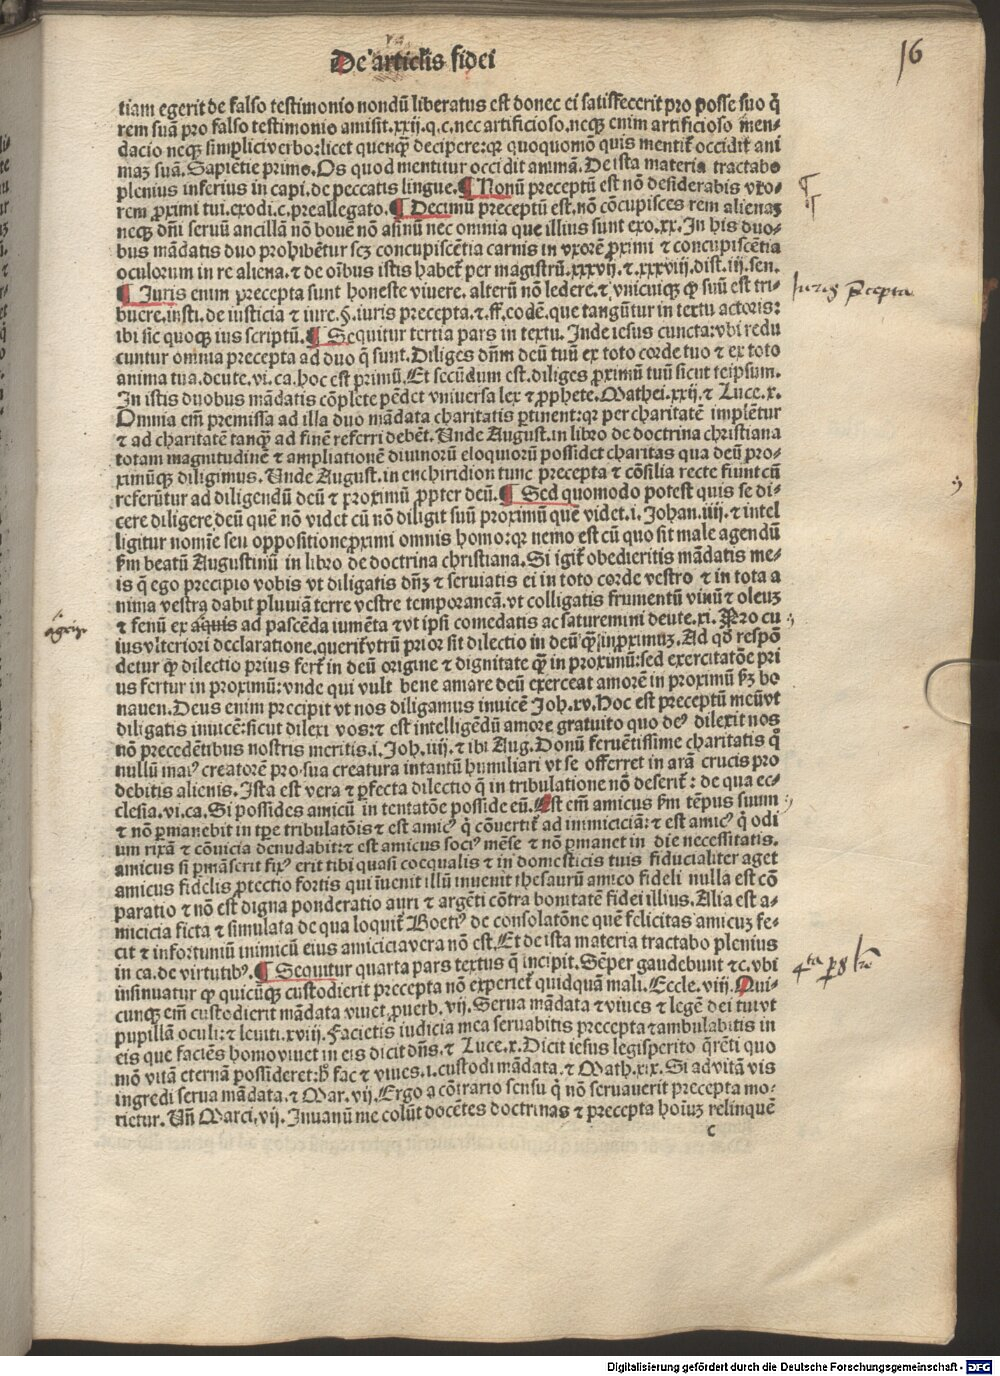 De articlis fidei
16
tiam egerit de falso testimonio nondū liberatus est donec ei satisfecerit pro posse suo q̄
rem suā pro falso testimonio amisit.xxij.q.c.nec artificioso.neqꝫ enim artificioso men-
dacio neqꝫ simplici verbo.licet quenqꝫ decipere:qꝛ quoquomō quis mentit̃ occidit ani
maꝫ suā.Sapietie primo.Os quod mentitur occidit animā.De ista materia tractabo
plenius inferius in capi.de peccatis lingue.¶ Nonū preceptū est nō desiderabis vxo-
rem ꝓximi tui.exodi.c.preallegato.¶ Decimū preceptū est.nō cōcupisces rem alienaꝫ
neqꝫ dn̄i seruū ancillā nō bouē nō asinū nec omnia que illius sunt exo.xx.In his duo-
bus mādatis duo prohibētur scꝫ concupiscētia carnis in vxorē ꝓximi ⁊ concupiscētia
oculorum in re aliena.⁊ de oībus istis habet̃ per magistrū.xxxvij.⁊.xxxviij.dist.iij.sen.
¶ Juris enim precepta sunt honeste viuere. alterū nō ledere.⁊ vnicuiqꝫ qꝫ suū est tri-
Juris p̄cepta
buere.insti.de iusticia ⁊ iure.§.iuris precepta.⁊.ff.eodē.que tangūtur in textu actoris:
ibi sic quoqꝫ ius scriptū.¶ Sequitur tertia pars in textu. Inde iesus cuncta:vbi redu
cuntur omnia precepta ad duo q̄ sunt.Diliges dn̄m deū tuū ex toto corde tuo ⁊ ex toto
anima tua.deute.vi.ca.hoc est primū.Et secūdum est.diliges ꝓximū tuū sicut teipsum.
In istis duobus mādatis cōplete pēdet vniuersa lex ⁊ ꝓphete.Mathei.xxij.⁊ Luce.x.
Omnia em̄ premissa ad illa duo mādata charitatis ꝑtinent:qꝛ per charitatē implētur
⁊ ad charitatē tanqꝫ ad finē referri debēt.Unde August.in libro de doctrina christiana
totam magnitudinē ⁊ ampliationē diuinorū eloquiorū possidet charitas qua deū pro-
ximūqꝫ diligimus.Unde August.in enchiridion tunc precepta ⁊ cōsilia recte fiunt cū
referūtur ad diligendū deū ⁊ proximū ꝓpter deū.¶ Sed quomodo potest quis se di-
cere diligere deū quē nō videt cū nō diligit suū proximū quē videt.i.Johan.iiij.⁊ intel
ligitur nomīe seu oppositione ꝓximi omnis homo:qꝛ nemo est cū quo sit male agendū
fm beatū Augustinū in libro de doctrina christiana.Si igit̃ obedieritis mādatis me-
is q̄ ego precipio vobis vt diligatis dn̄ꝫ ⁊ seruiatis ei in toto corde vestro ⁊ in tota a
nima vestra dabit pluuiā terre vestre temporaneā.vt colligatis frumentū vinū ⁊ oleuꝫ
⁊ fenū ex aquis ad pascēda iumēta ⁊ vt ipsi comedatis ac saturemini deute.xi.Pro cu
ius vlteriori declaratione.querit̃ vtrū prior sit dilectio in deū qꝫ in ꝓximuꝫ.Ad qd̄ respō
detur qꝫ dilectio prius fert̃ in deū origine ⁊ dignitate qꝫ in proximū:sed exercitatōe pri
us fertur in proximū:vnde qui vult bene amare deū exerceat amorē in proximū fꝫ bo
nauen.Deus enim precipit vt nos diligamus inuicē Joh.xv.Hoc est preceptū meū vt
diligatis inuicē:sicut dilexi vos:⁊ est intelligēdū amore gratuito quo deꝰ dilexit nos
nō precedētibus nostris meritis.i.Joh.iiij.⁊ ibi Aug.Donū feruētissime charitatis q̄
nullū maiꝰ creatorē pro sua creatura intantū humiliari vt se offerret in arā crucis pro
debitis alienis.Ista est vera ⁊ ꝑfecta dilectio q̄ in tribulatione nō deserit̃: de qua ec-
clesia.vi.ca.Si possides amicū in tentatōe posside eū.Est em̄ amicus fm tēpus suum
⁊ nō ꝑmanebit in tpe tribulatōis ⁊ est amicꝰ q̇ cōuertit̃ ad inimiciciā:⁊ est amicꝰ q̇ odi
um rixā ⁊ cōuicia denudabit:⁊ est amicus sociꝰ mēse ⁊ nō ꝑmanet in die necessitatis.
amicus si ꝑmāserit fixꝰ erit tibi quasi coequalis ⁊ in domesticis tuis fiducialiter aget
amicus fidelis ꝓtectio fortis qui īuenit illū inuenit thesaurū amico fideli nulla est cō
paratio ⁊ nō est digna ponderatio auri ⁊ argēti cōtra bonitatē fidei illius.Alia est a-
micicia ficta ⁊ simulata de qua loquit̃ Boetiꝰ de consolatōne quē felicitas amicuꝫ fe-
cit ⁊ infortuniū inimicū eius amicicia vera nō est.Et de ista materia tractabo plenius
in ca.de virtutibꝰ.¶ Sequitur quarta pars textus q̄ incipit.Sēper gaudebunt ⁊c.vbi
4ta p̄s
insinuatur qꝫ quicūqꝫ custodierit precepta nō experiet̃ quidquā mali.Eccle.viij.Qui-
cunqꝫ em̄ custodierit mādata viuet ꝓuerb.vij.Serua mādata ⁊ viues ⁊ legē dei tui vt
pupillā oculi:⁊ leuiti.xviij.Facietis iudicia mea seruabitis precepta ⁊ ambulabitis in
eis que faciēs homo viuet in eis dicit dn̄s.⁊ Luce.x.Dicit iesus legisperito q̄rēti quo
mō vitā eternā possideret:h̄ fac ⁊ viues.i.custodi mādata.⁊ Math.xix.Si ad vitā vis
ingredi serua mādata.⁊ Mar.vij.Ergo a cōtrario sensu q̇ nō seruauerit precepta mo-
rietur.Un̄ Marci.vij.Inuanū me colūt docētes doctrinas ⁊ precepta hoīuꝫ relinquē
c
Digitalisierung gefördert durch die Deutsche Forschungsgemeinschaft - DFG